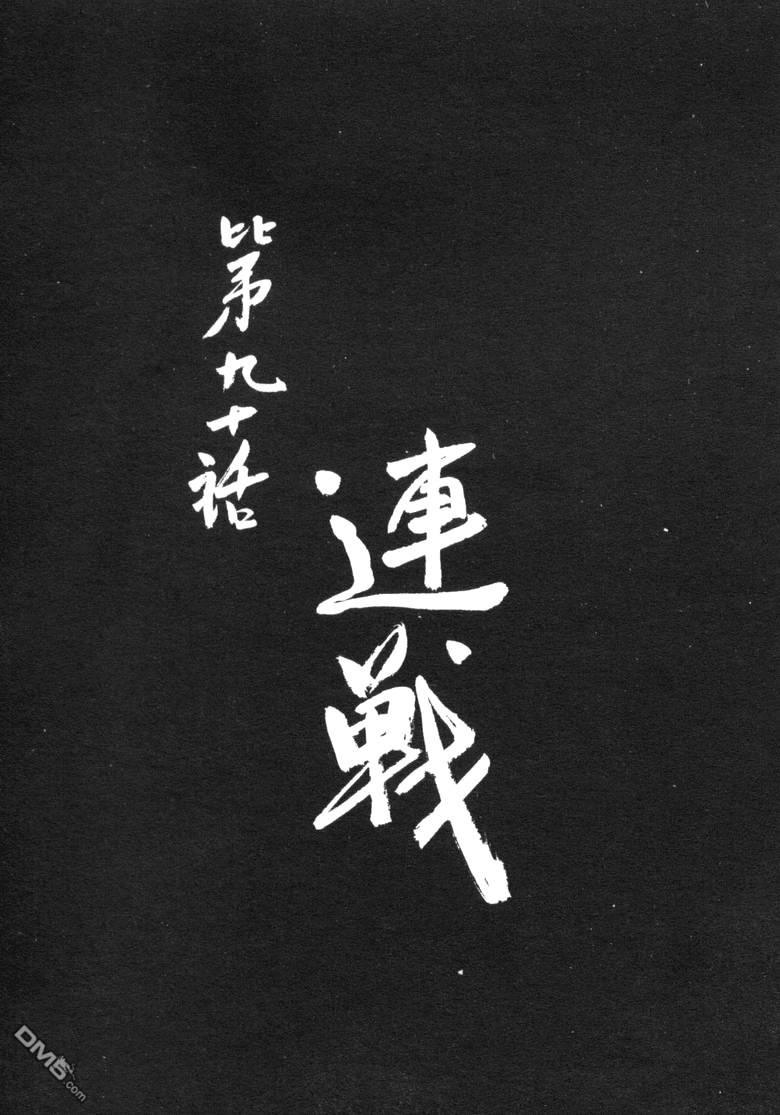 連戦
第九十話
DM5.com